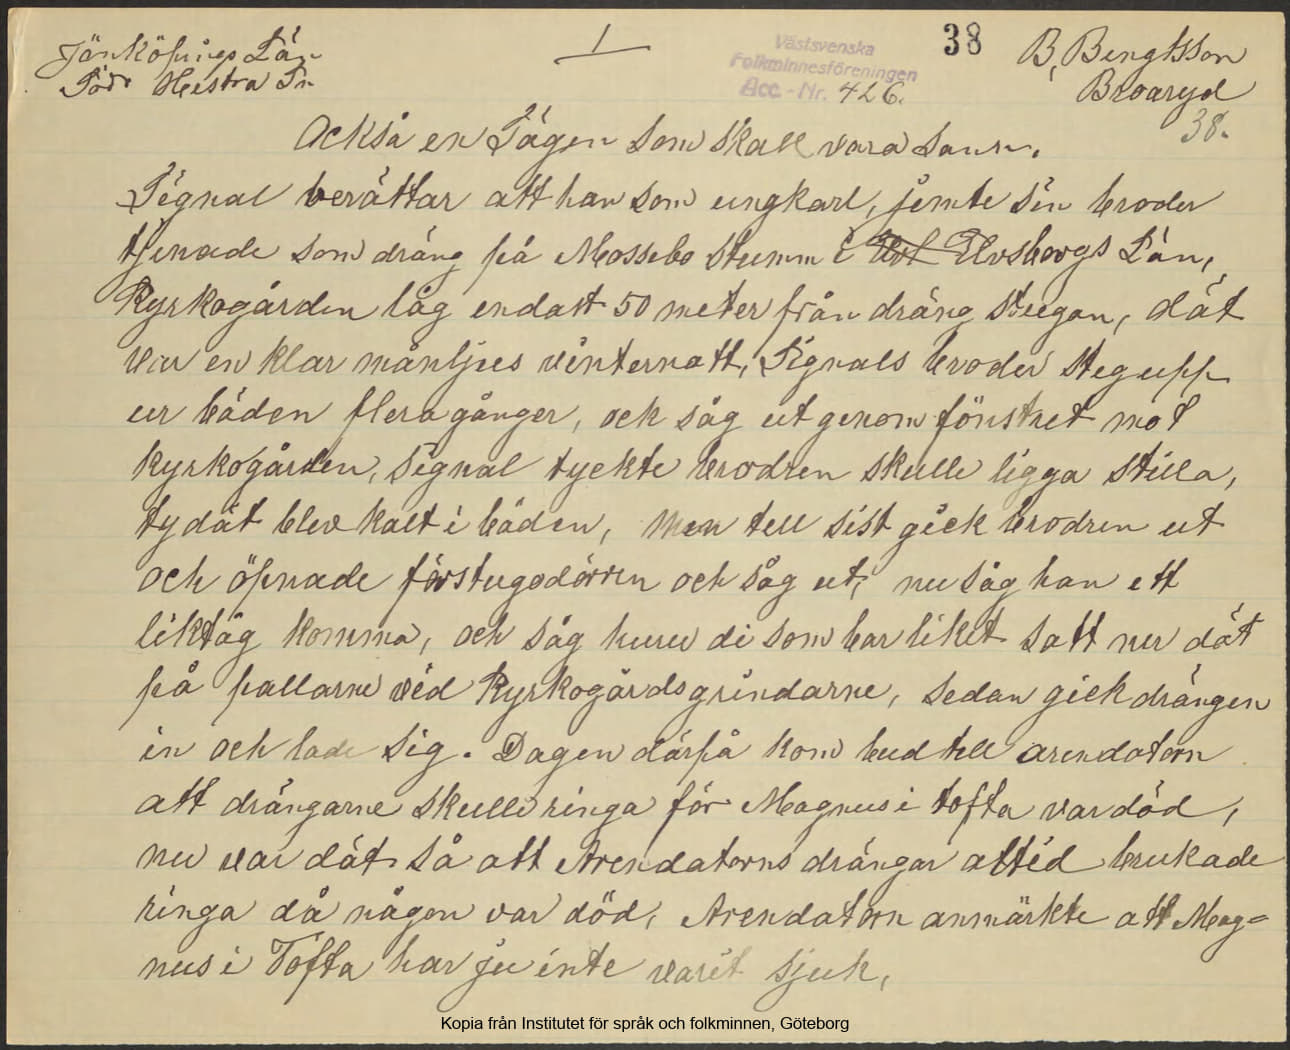 Jönköpings Län
Södr Hestra Sn
1
Västsvenska
Folkminnesföreningen
Acc.-Nr. 426.
38
B, Bengtsson
Broaryd
38.
Också en Sägen som skall vara sann.
Signal berättar att han som ungkarl, jemte sin broder
tjenade som dräng på Mossebo stumm i Elvsborgs Län,
Kyrkogården låg endast 50 meter från dräng stugan, dät
var en klar månljus vinternatt, Signals broder steg upp
ur bäden flera gånger, ock såg ut genom fönstret mot
kyrkogården, Signal tyckte brodren skulle ligga stilla,
ty dät blev kalt i bäden, men tell sist gick brodren ut
och öpnade förstugodörren och såg ut, nu såg han ett
liktåg komma, och såg huru di som bar liket satt ner dät
på pallarne vid Kyrkogårdsgrindarne, sedan gick drängen
in och lade sig. Dagen därpå kom bud tell arendatorn
att drängarne skulle ringa för Magnus i tofta var död,
nu var dät så att Arendatorns drängar altid brukade
ringa då någon var död, Arendatorn anmärkte att Mag=
nus i Tofta har ju inte varit sjuk,
Kopia från Institutet för språk och folkminnen, Göteborg